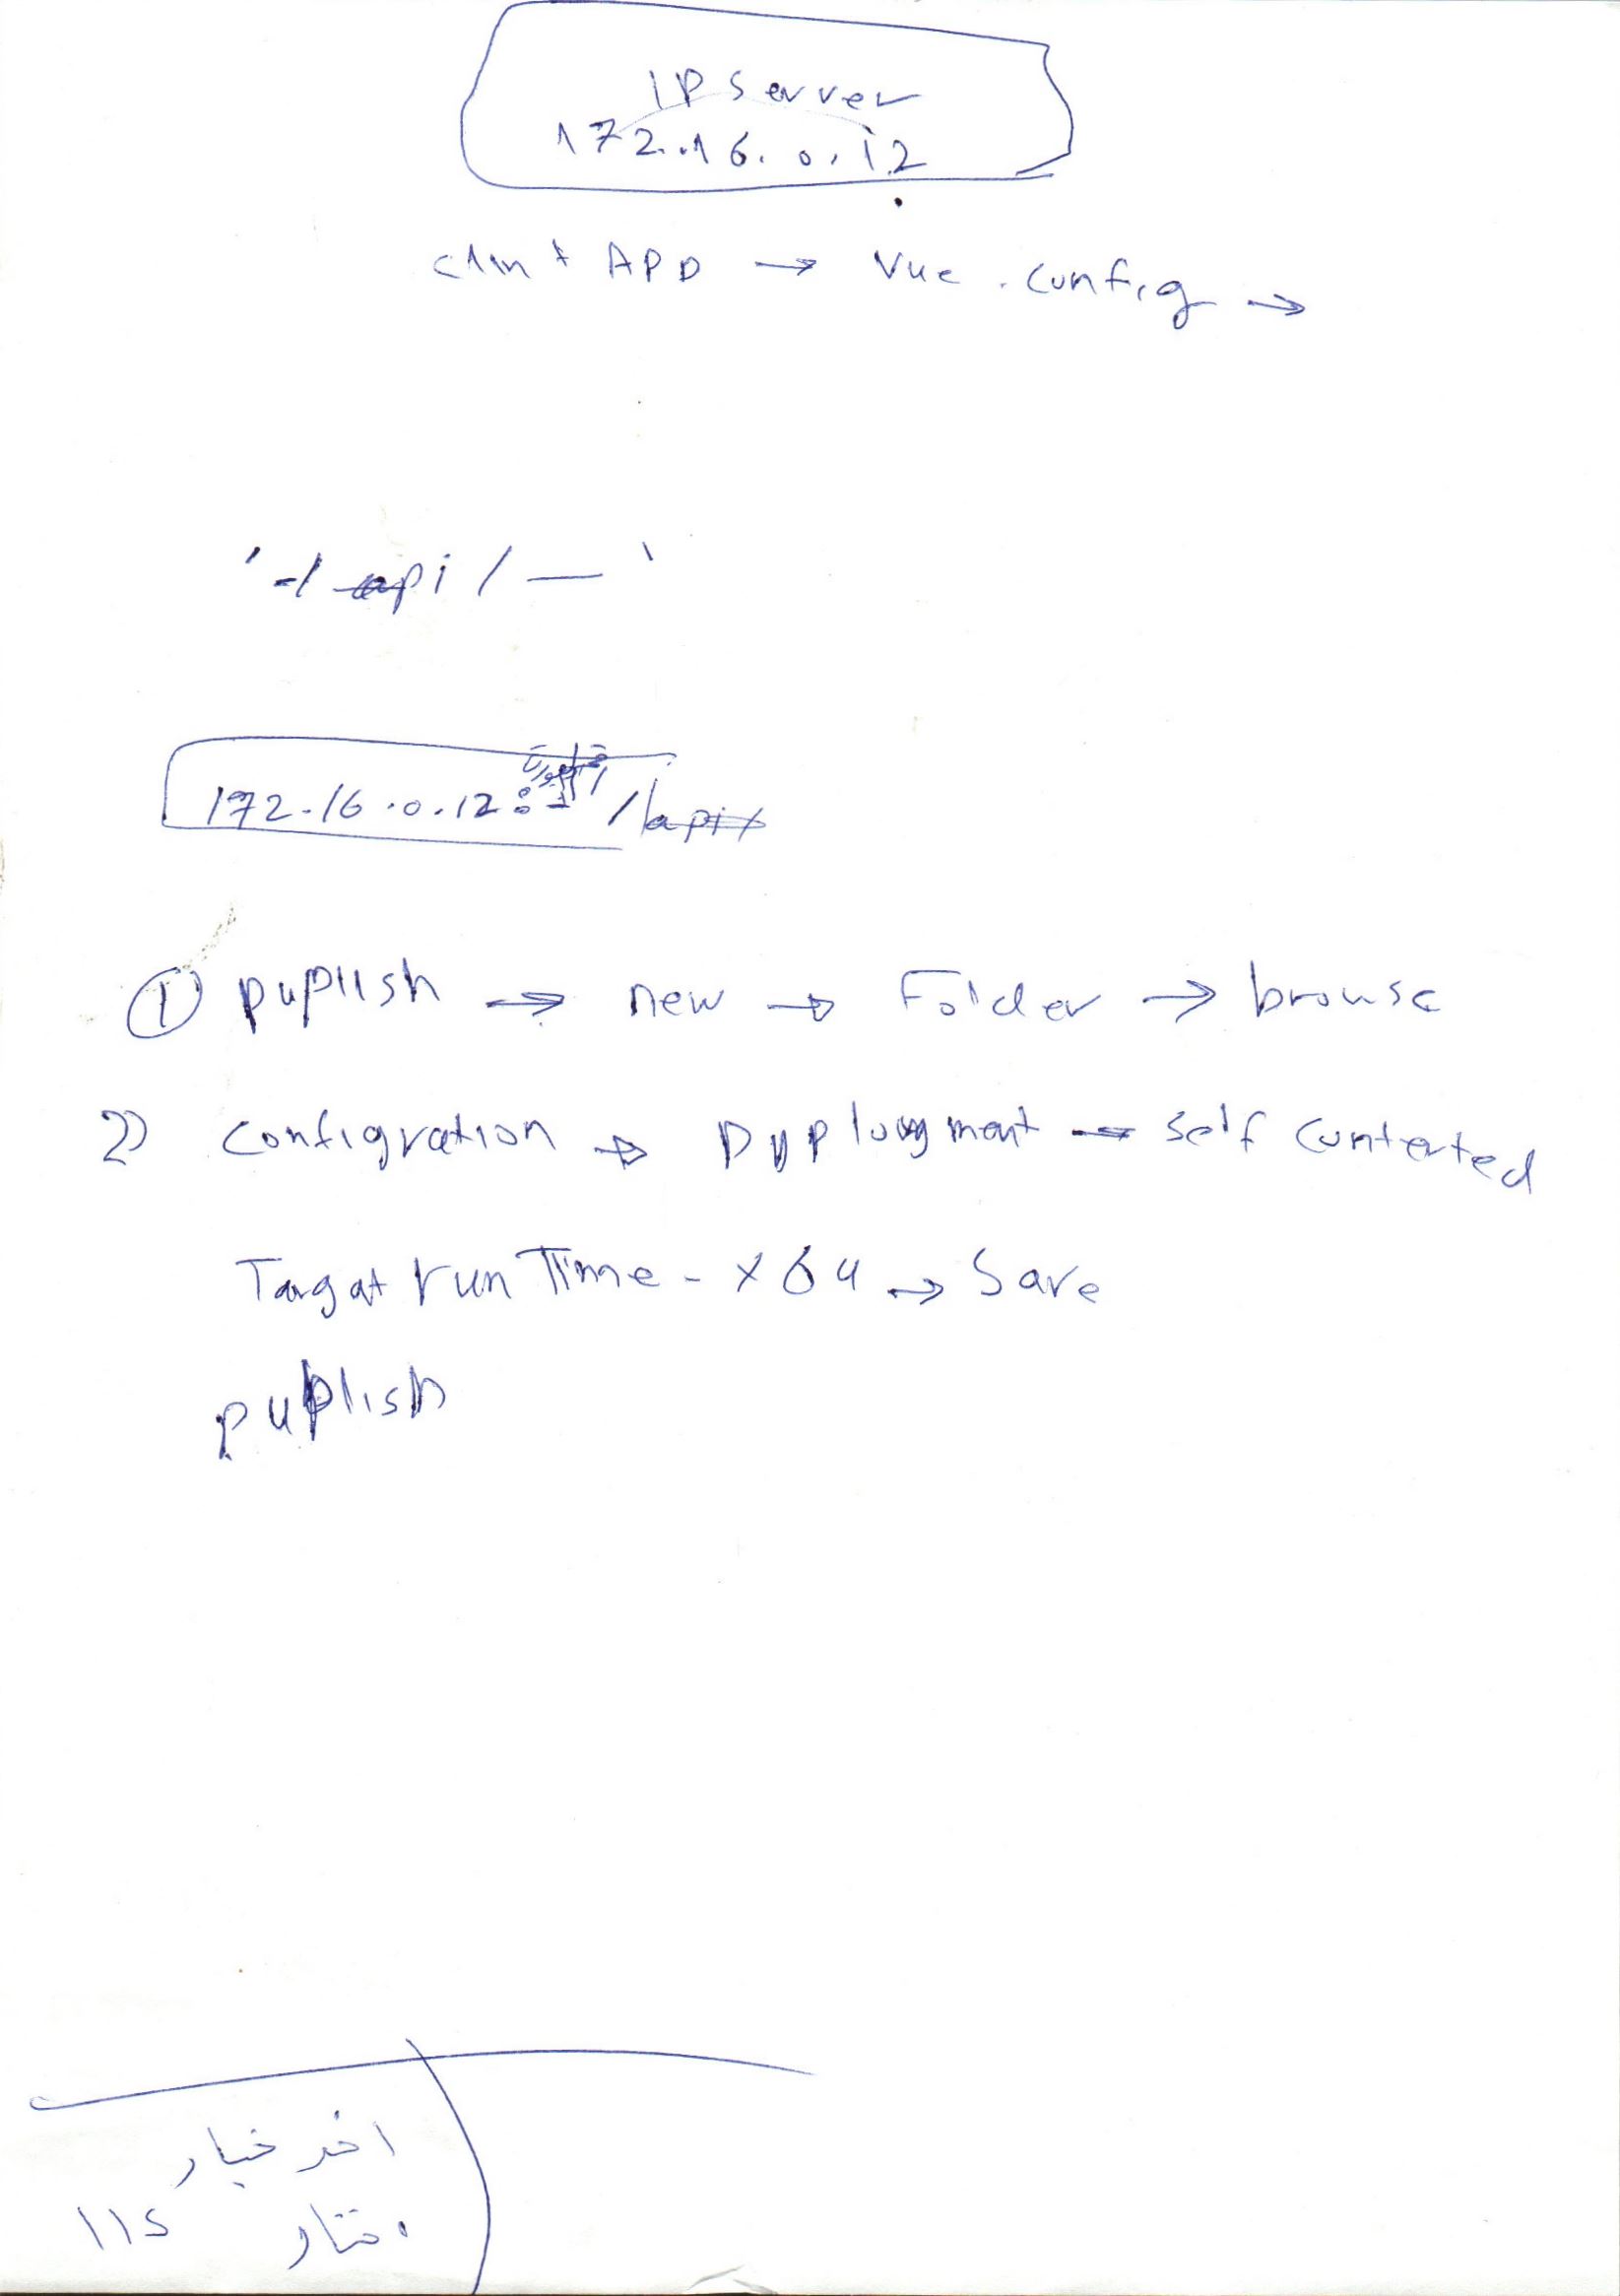 IP Server
172.16.0.12
clint APP → Vue.config →
'-/ api / — '
172.16.0.12: /api/
① puplish → new → Folder → browse
2) configration → Dyplougment → self conterted
Target run Time - x64 → Save
puplish
اخر خيار
اختار IIS